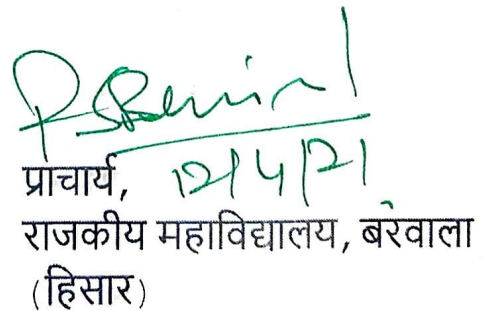 प्राचार्य, 12/4/21
राजकीय महाविद्यालय, बरवाला
(हिसार)